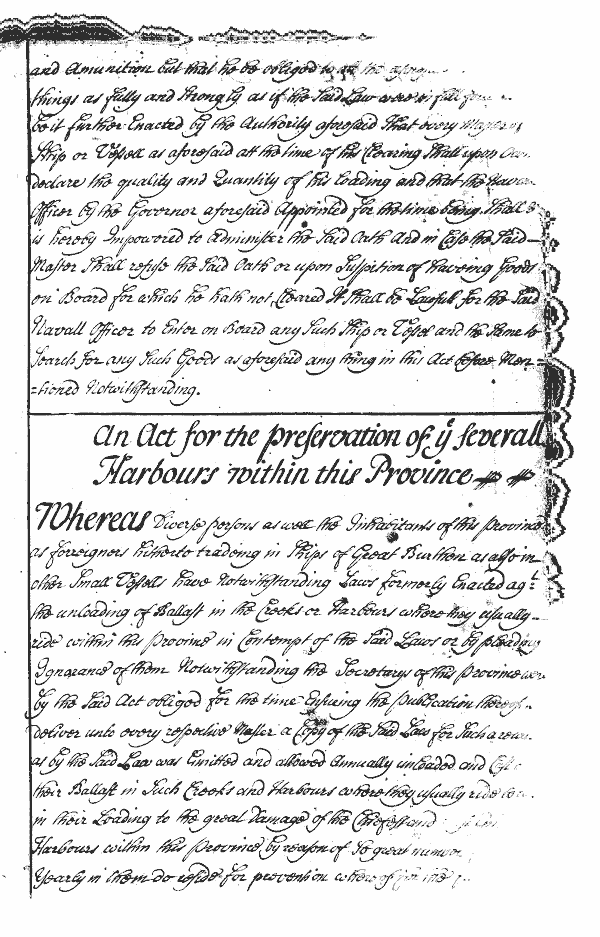 and Amunition but that he be obliged to
things as fully and strongly as if the said Law were in full
be it further Enacted by the Authority aforesaid That every
Ship or Vessell as aforesaid at the time of his Clearing Shall upon
declare the quality and Quantity of his loading and that the
Officer by the Governor aforesaid Appointed for the time being Shall
is hereby Impowered to administer the Said Oath And in Case the Said
Master Shall refuse the Said Oath or upon Suspition of haveing Goods
on Board for which he hath not Cleared It shall be Lawfull for the Said
Navall Officer to Enter on Board any Such Ship or Vessel and the Same to
Search for any Such Goods as aforesaid any thing in this Act before Men
=tioned Notwithstanding.
An Act for the preservation of ye severall
Harbours within this Province
Whereas Diverse persons as well the Inhabitants of this Province
as foreigners hitherto tradeing in Ships of Great Burthen as also in
other Small Vessells have Notwithstanding Laws formerly Enacted agt
the unloading of Ballast in the Creeks or Harbours where they usually
ride within this Province in Contempt of the Said Laws or by pleading
Ignorance of them Notwithstanding the Secretarys of this Province
by the Said Act obliged for the time Ensuing the Publication thereof
deliver unto every respective Master a Copy of the Said Law for Such a
as by the Said Law was Emitted and allowed Annually unloaded and
their Ballast in Such Creeks and Harbours where they usually ride
in their Loading to the great Damage of the Chiefest and
Harbours within this Province by reason of so great
Yearly in them do reside for prevention whereof in the